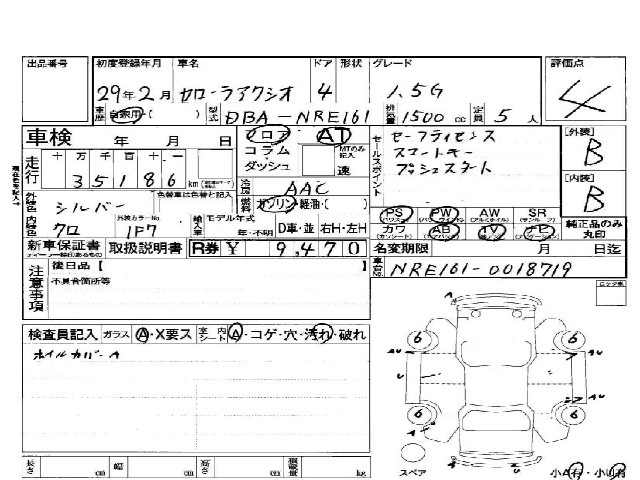 出品番号 初度登録年月 車名 ドア 形状 グレード 評価点
29年2月 カローラアクシオ 4 1.5G 4
車歴 自家用( ) 型式 DBA-NRE161 排気量 1500 cc 定員 5 人
車検 年 月 日 フロア AT セールスポイント セーフティセンス [外装]
コラム MTのみ記入 スマートキー B
走行 十 万 千 百 十 一 ダッシュ 速 プッシュスタート
35186 km 冷房 AAC [内装]
外装色 シルバー 色替車は色替と記入 燃料 ガソリン・軽油( ) B
内装色 クロ 外装カラーNo. 1F7 輸入車 モデル年式 年・不明 D車・並 右H・左H
PS PW AW SR
カワ AB TV 純正品のみ丸印
新車保証書 取扱説明書 R券 ¥ 9,470 名変期限 月 日迄
注意事項 後日品【 】 車台No. NRE161-0018719
不具合箇所等
検査員記入 ガラス A・X要ス 室内 シート A・コゲ・穴・汚れ・破れ
ホイルカバーA
A
6 AU AU 6
U
6 AU 6
A U
長さ cm 幅 cm 高さ cm 積載量 kg スペア 小A有・小U有